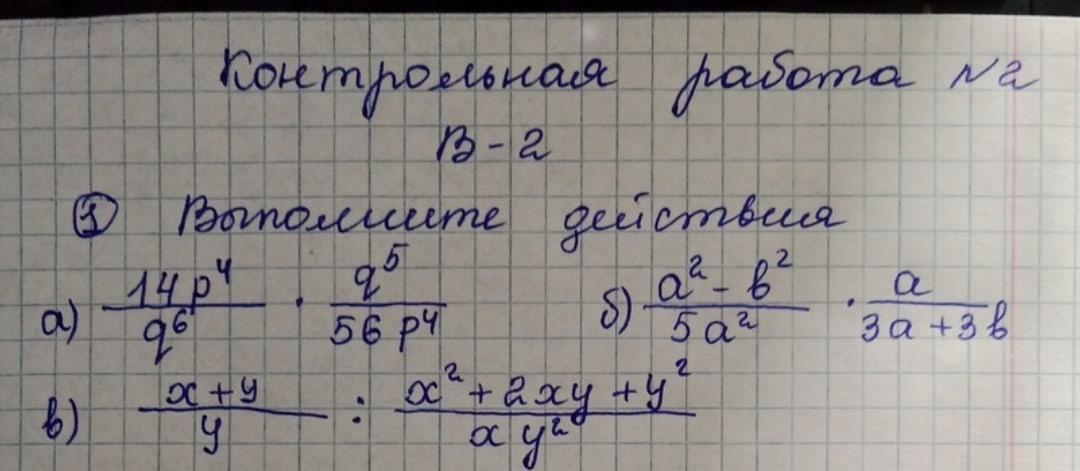 Контрольная работа №2
В-2
① Выполните действия
а) \frac{14p^4}{q^6} · \frac{q^5}{56p^4} б) \frac{a^2-b^2}{5a^2} · \frac{a}{3a+3b}
в) \frac{x+y}{y} : \frac{x^2+2xy+y^2}{xy^2}